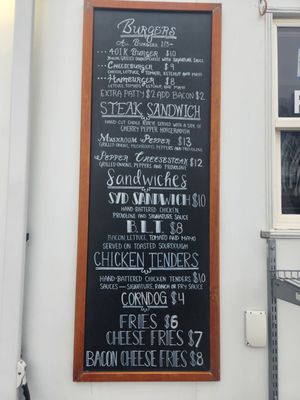 BURGERS
ALL BURGERS 1/3
401K BURGER $10
SIGNATURE SAUCE
CHEESEBURGER $9
CHEESE, LETTUCE, TOMATO, KETCHUP AND MAYO
HAMBURGER $8
LETTUCE, TOMATO, KETCHUP AND MAYO
EXTRA PATTY $2 ADD BACON $2
STEAK SANDWICH
HAND-CUT CHOICE RIBEYE SERVED WITH A SIDE OF
CHERRY PEPPER HORSERADISH
MUSHROOM PEPPER $13
GRILLED ONIONS, MUSHROOMS, PEPPERS AND PROVOLONE
PEPPER CHEESESTEAK $12
GRILLED ONIONS, PEPPERS AND PROVOLONE
SANDWICHES
SYD SANDWICH $10
HAND-BATTERED CHICKEN,
PROVOLONE AND SIGNATURE SAUCE
B.L.T. $8
BACON LETTUCE TOMATO AND MAYO
SERVED ON TOASTED SOURDOUGH
CHICKEN TENDERS
HAND-BATTERED CHICKEN TENDERS $10
SAUCES - SIGNATURE, RANCH OR FRY SAUCE
CORNDOG $4
FRIES $6
CHEESE FRIES $7
BACON CHEESE FRIES $8